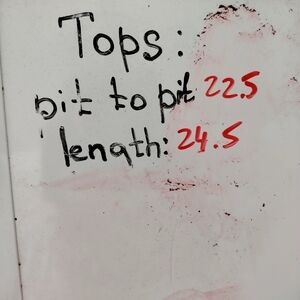 Tops:
pit to pit 22.5
length: 24.5